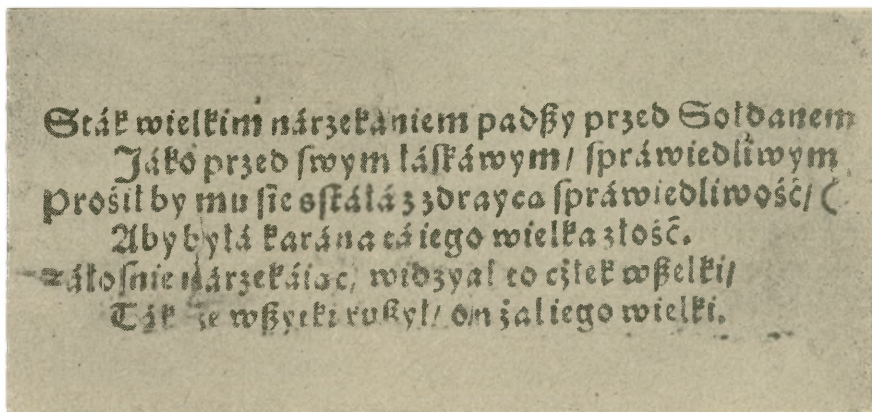 Sták wielkim nárzekániem padßy przed Sołdanem
Jáko przed swym łáskáwym/ spráwiedliwym
Prośił by mu sie sstáłá z zdrayca spráwiedliwość/
Aby byłá karána tá iego wielka złość.
nárzekáiac, widzyał to cżłek wßelki/
Ták że wßytki rußył/ on żal iego wielki.